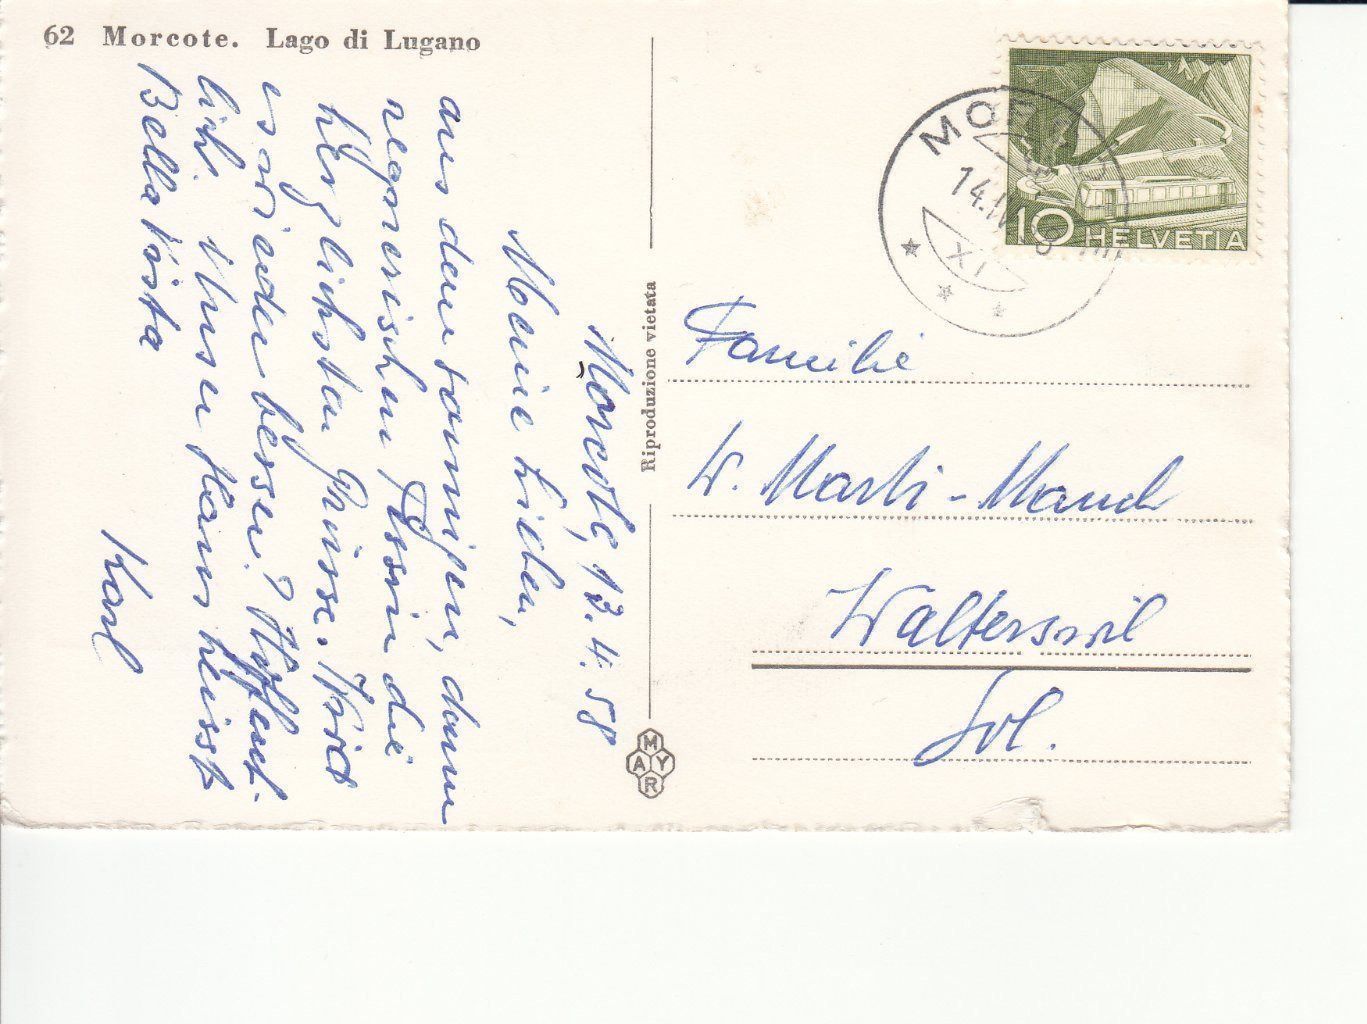 62 Morcote. Lago di Lugano
Morcote, 13.4.58
Meine Lieben,
aus dem sonnigen, dann
regnerischen Tessin die
herzlichsten Grüsse. Wird
es wieder besser? Hoffent-
lich. Unser Haus heisst
Bella Vista
Karl
Riproduzione vietata
MAYR
14.IV
XI
10 HELVETIA
Familie
W. Marti-Mand
Walterswil
Sol.